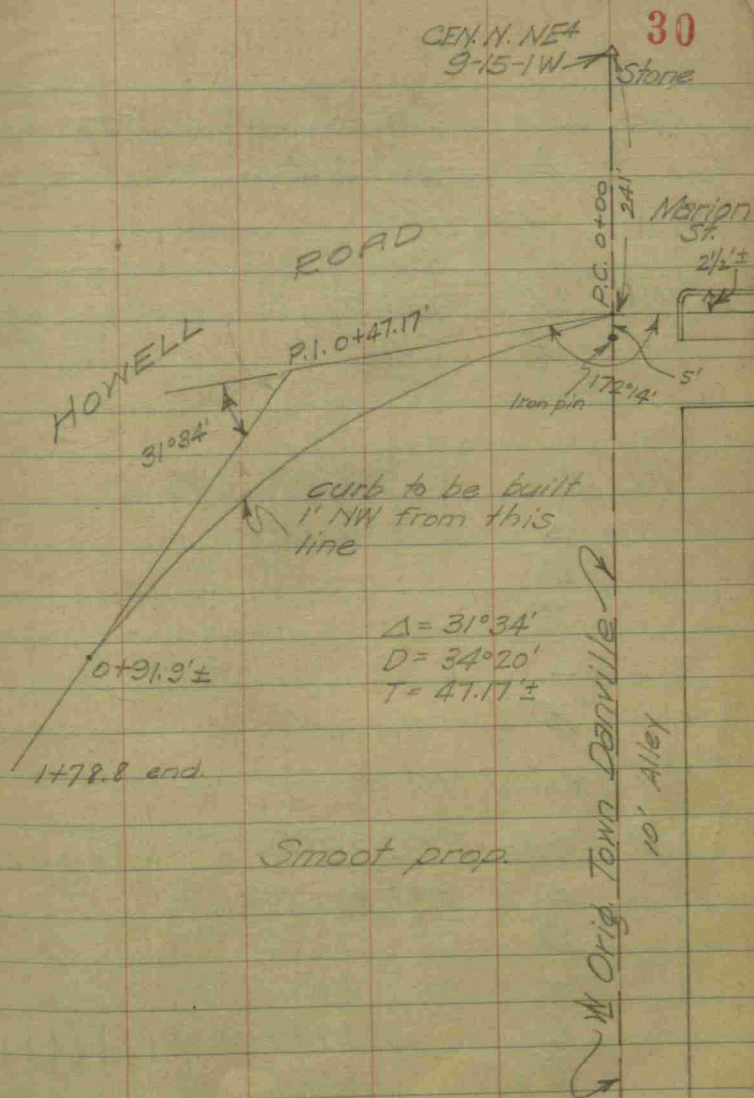 30
CEN. N. NE4
9-15-1W
Stone
P.C. 0+00
241'
Marion
St.
2½'±
HOWELL ROAD
P.I. 0+47.17'
31°34'
Iron pin
172°14'
5'
curb to be built
1' NW from this
line
Δ = 31°34'
D = 34°20'
T = 47.17'±
0+91.9'±
1+78.8 end.
Smoot prop.
W Orig. Town Danville
10' Alley